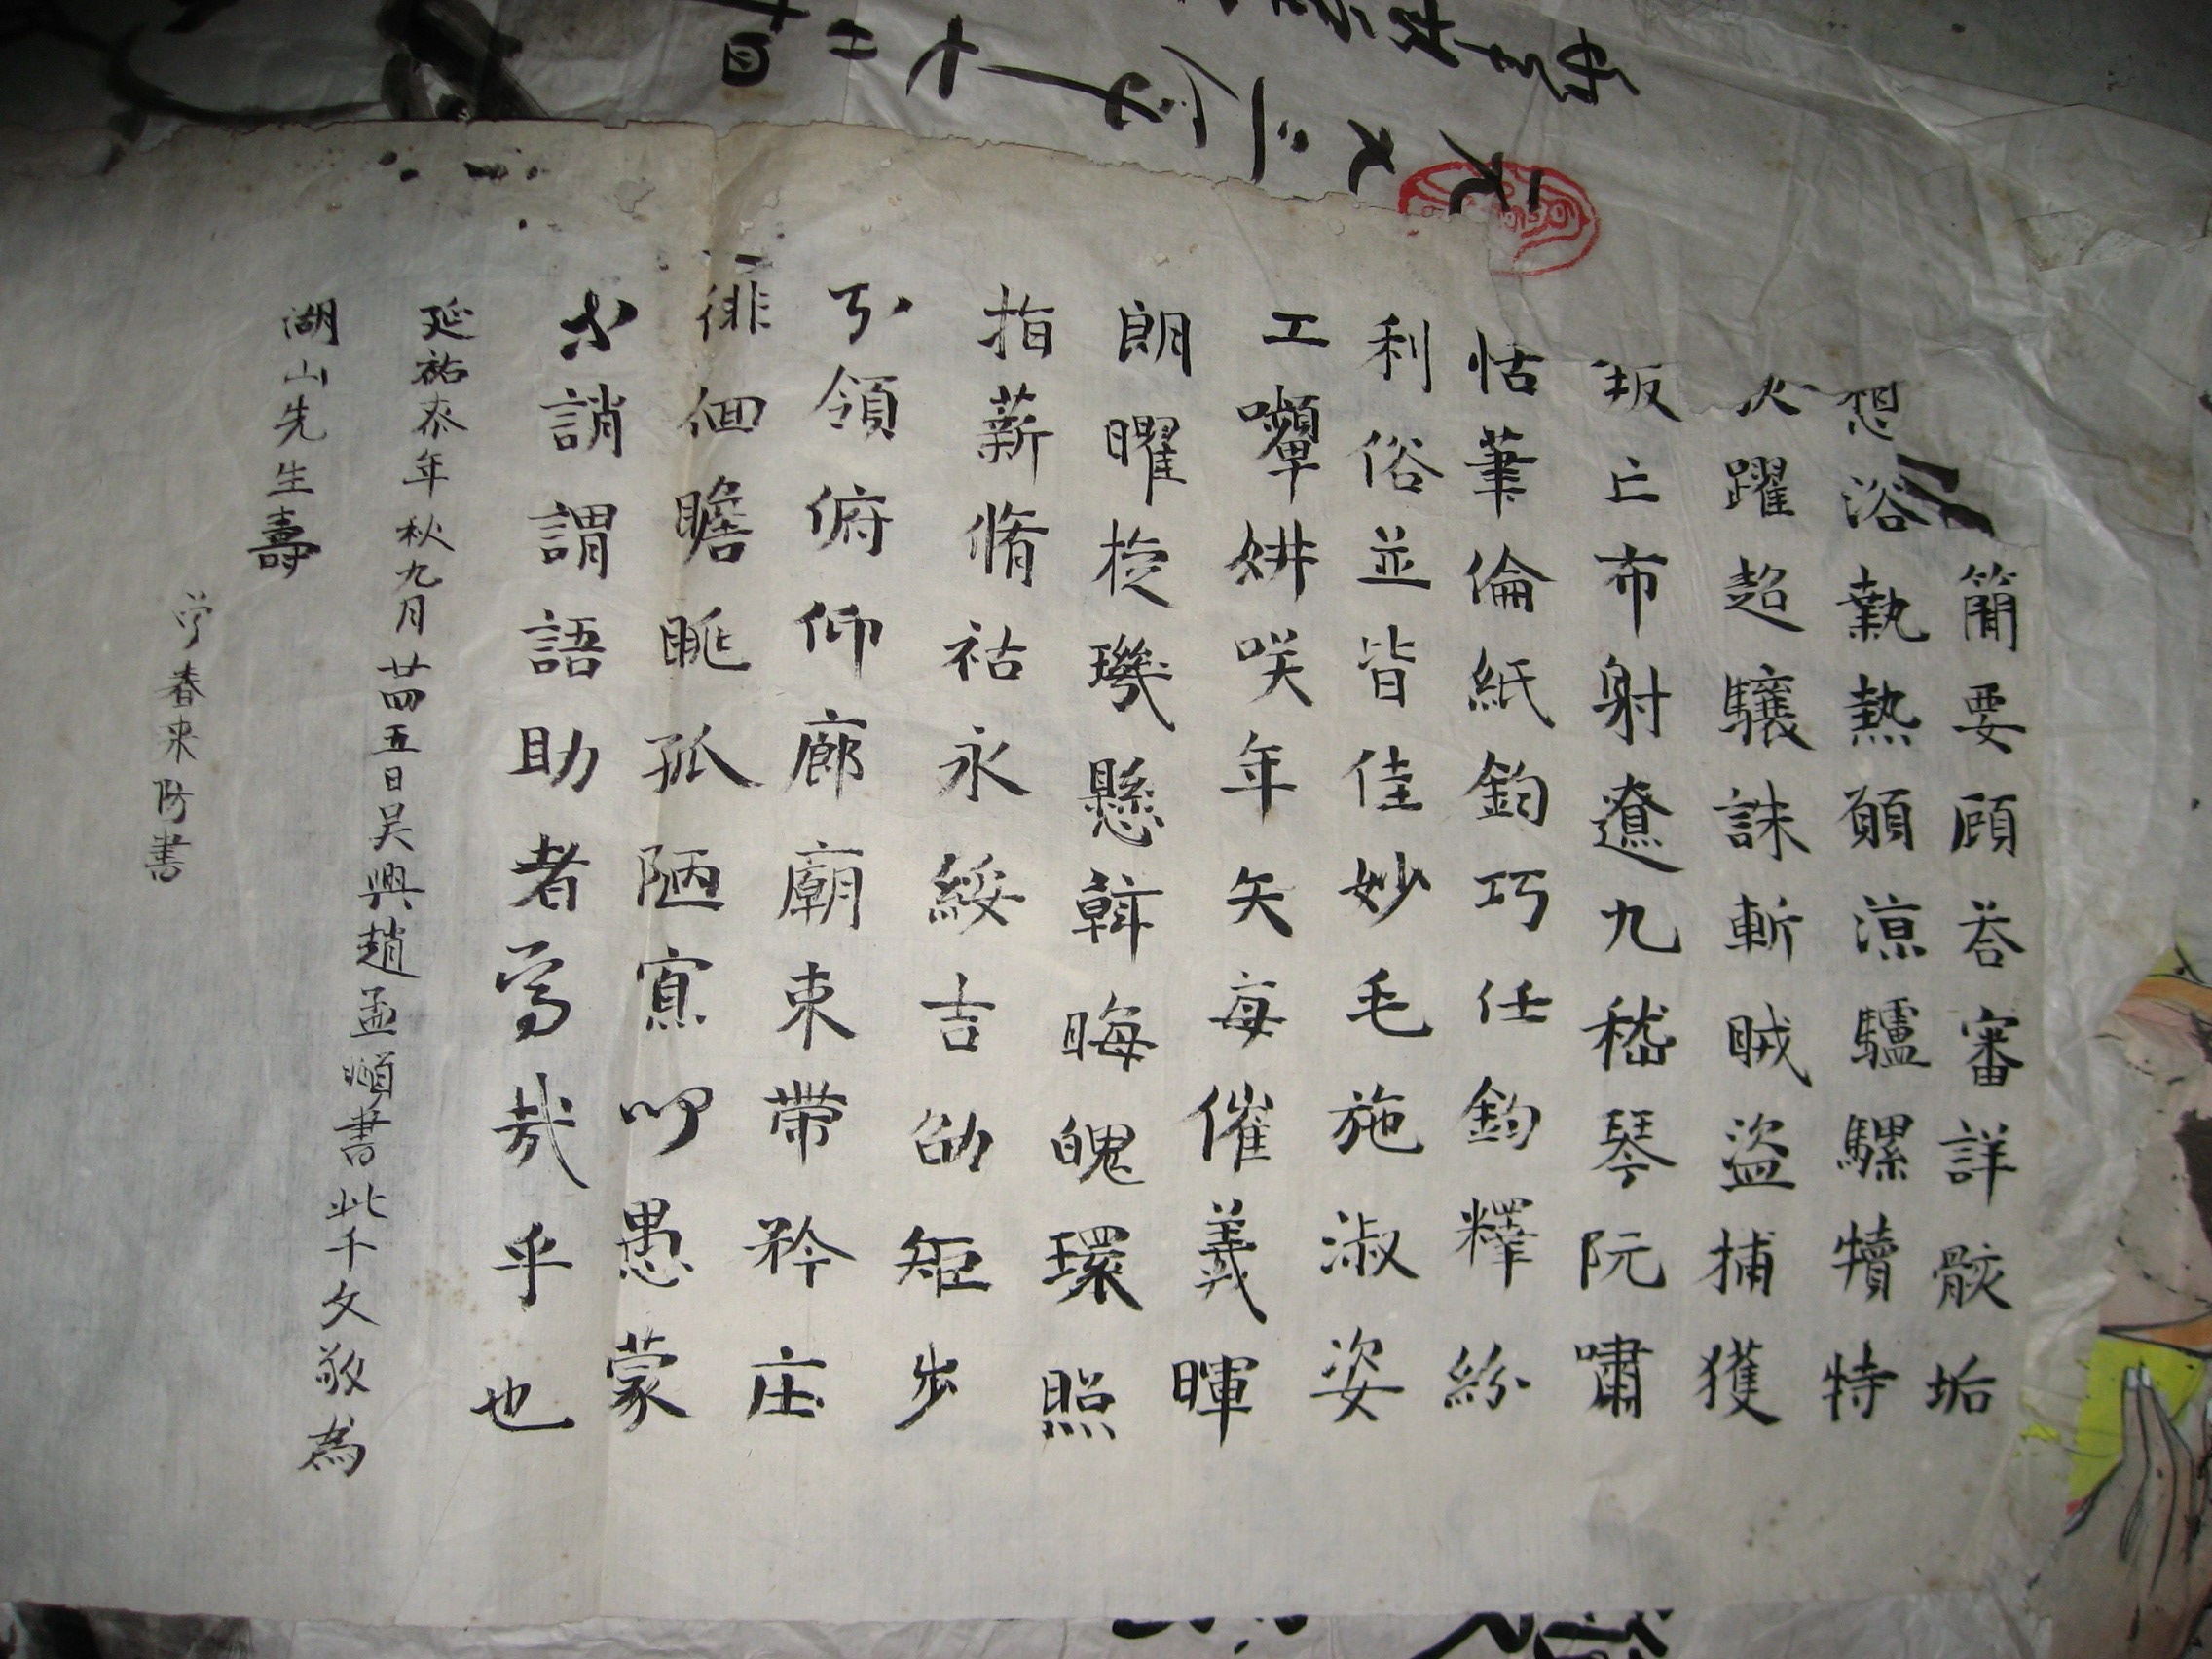 簡要顧荅審詳骸垢
想浴執熱願涼驢騾犢特
躍超驤誅斬賊盜捕獲
叛亡布射遼九嵇琴阮嘯
恬筆倫紙鈞巧任鈞釋紛
利俗並皆佳妙毛施淑姿
工嚬妍咲年矢每催義暉
朗曜旋璣懸斡晦魄環照
指薪脩祜永綏吉劭矩步
引領俯仰廊廟束帶矜庄
徘徊瞻眺孤陋寡聞愚蒙
等誚謂語助者焉哉乎也
延祐年秋九月廿四五日吳興趙孟頫書此千文敬為
湖山先生壽
春來防書